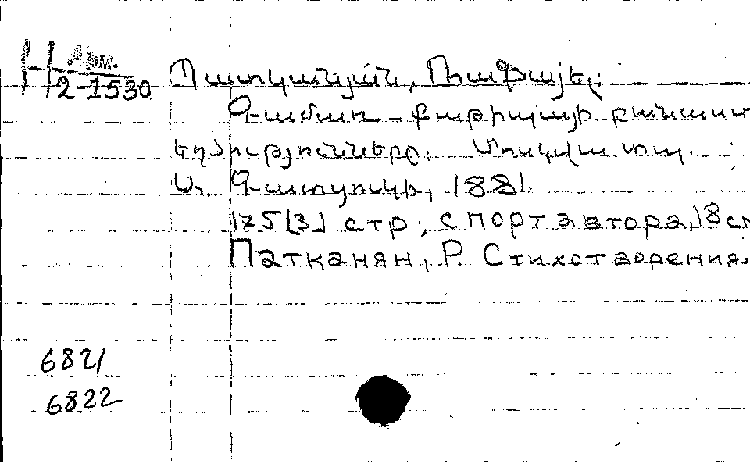 Арм.
Н 2-1530
Պատկանյան, Ռափայել:
Գամառ-Քաթիպայի բանաստ
եղծությունները. Մոսկվա տպ.
Ս. 1881.
175[3] стр, с порт автора, 18 с
Патканян, Р. Стихотворения.
6821
6822